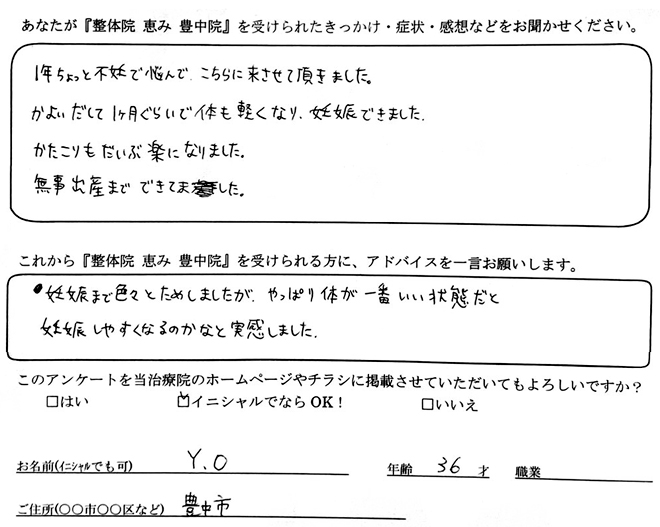 あなたが『整体院 恵み 豊中院』を受けられたきっかけ・症状・感想などをお聞かせください。
1年ちょっと不妊で悩んで、こちらに来させて頂きました。
かよいだして1ヶ月ぐらいで体も軽くなり、妊娠できました。
かたこりもだいぶ楽になりました。
無事出産までできてました。
これから『整体院 恵み 豊中院』を受けられる方に、アドバイスを一言お願いします。
●妊娠まで色々とためしましたが、やっぱり体が一番いい状態だと
妊娠しやすくなるのかなと実感しました。
このアンケートを当治療院のホームページやチラシに掲載させていただいてもよろしいですか？
□はい ☑イニシャルでならOK！ □いいえ
お名前(イニシャルでも可) Y.O 年齢 36 才 職業
ご住所(〇〇市〇〇区など) 豊中市